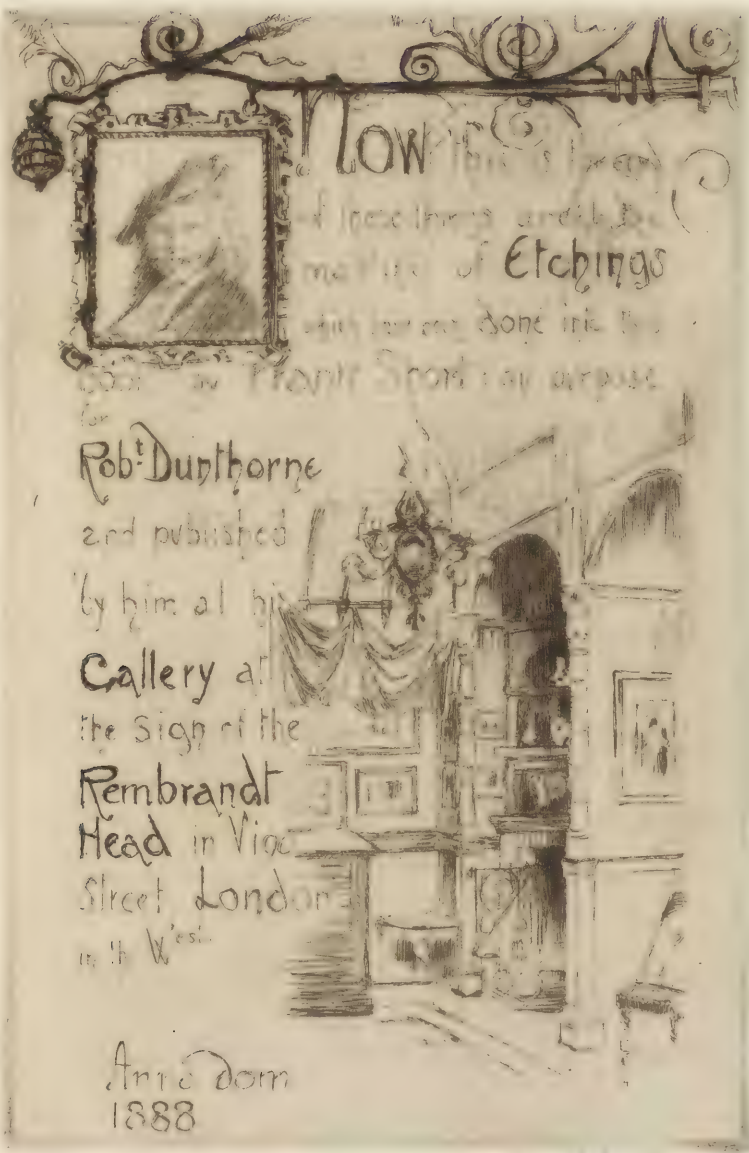 Now this is the end
of these things and the
of Etchings
which done into this
book by Frank Short ay purpose
for
Robt Dunthorne
and published
by him at his
Gallery at
the Sign of the
Rembrandt
Head in Vigo
Street London
in the West.
Anno Dom
1888